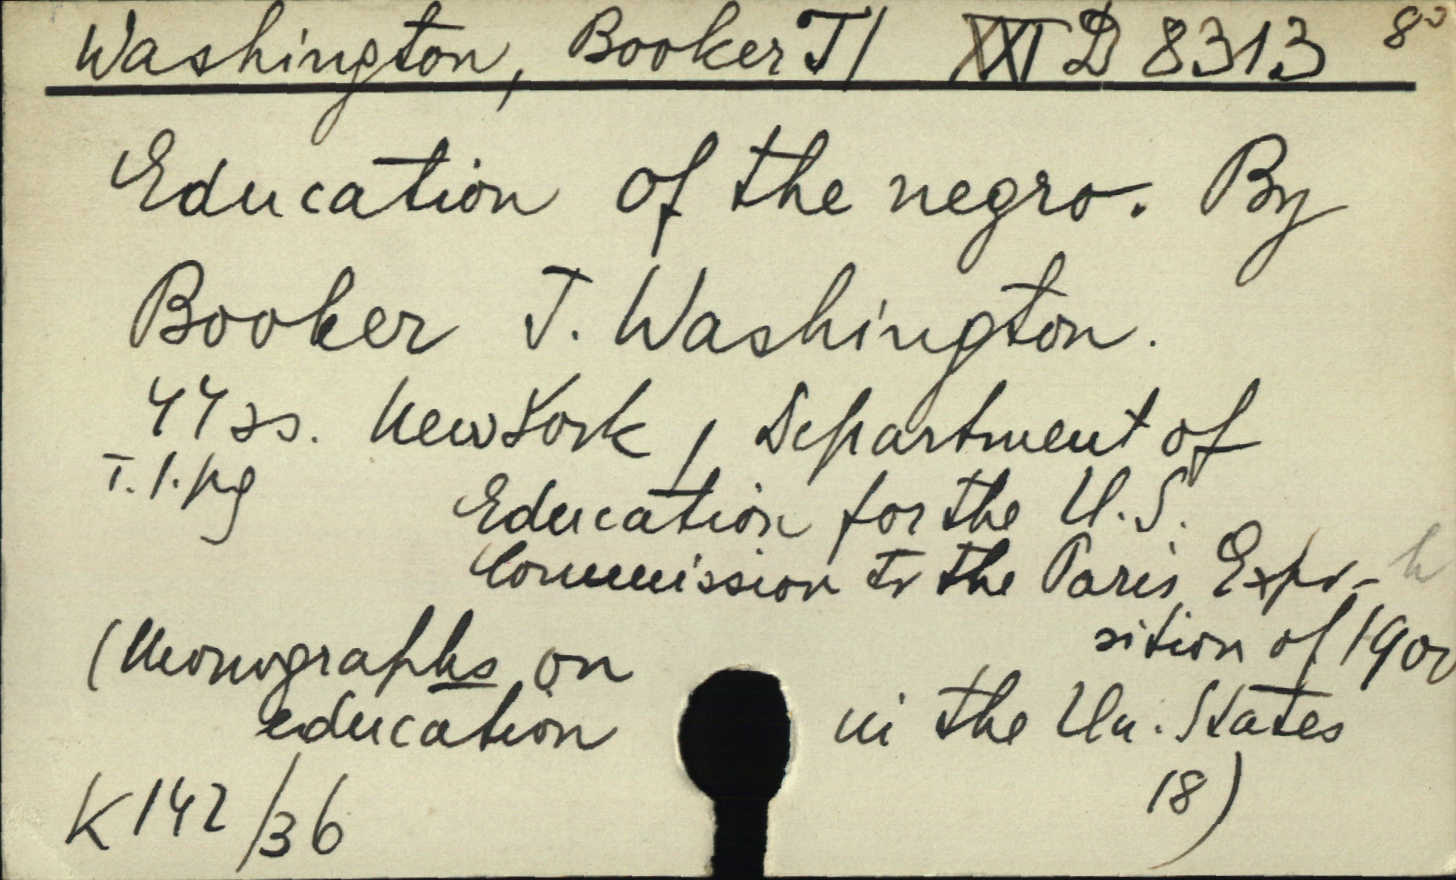 Washington, Booker T/ XXI D 8313 8°
Education of the negro. By
Booker T. Washington.
44 ss. New York, Department of
T. 1. pg
Education for the U.S.
Commission to the Paris Expo-
sition of 1900
(Monographs on
education in the Un. States
18)
K 142/36